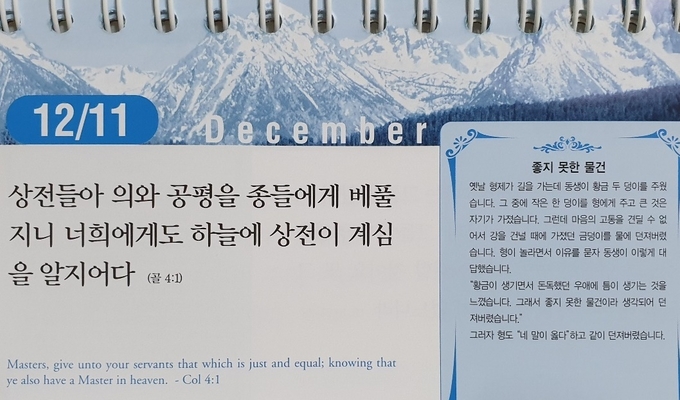 12/11
December
상전들아 의와 공평을 종들에게 베풀
지니 너희에게도 하늘에 상전이 계심
을 알지어다 (골 4:1)
Masters, give unto your servants that which is just and equal; knowing that
ye also have a Master in heaven. - Col 4:1
좋지 못한 물건
옛날 형제가 길을 가는데 동생이 황금 두 덩이를 주웠
습니다. 그 중에 작은 한 덩이를 형에게 주고 큰 것은
자기가 가졌습니다. 그런데 마음의 고통을 견딜 수 없
어서 강을 건널 때에 가졌던 금덩이를 물에 던져버렸
습니다. 형이 놀라면서 이유를 묻자 동생이 이렇게 대
답했습니다.
"황금이 생기면서 돈독했던 우애에 틈이 생기는 것을
느꼈습니다. 그래서 좋지 못한 물건이라 생각되어 던
져버렸습니다."
그러자 형도 "네 말이 옳다"하고 같이 던져버렸습니다.